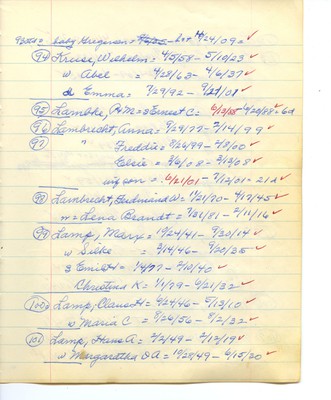 baby Gregerson
94 Kruse, Wilhelm = 4/5/58 - 5/10/23 ✓
w Abel = 4/28/63 - 4/6/37 ✓
d Emma = 7/29/92 - 9/27/01 ✓
95 Lambke, = s Ernest C = 6/13/88 - 6d ✓
96 Lambrecht, Anna = 9/29/77 - 2/14/99 ✓
97 " Freddie = 7/26/99 - ✓
Elsie = 3/6/08 - 2/13/08 ✓
inf son = 6/21/01 - 7/12/01 = 21d ✓
98 Lambrecht, Ferdinand W = 11/21/70 - 4/17/45 ✓
w = Lena Brandt = 7/31/81 - 2/11/16 ✓
99 Lamp, Marx = 10/24/41 - 9/30/14 ✓
w Silke = 2/14/46 - 9/20/35 ✓
s Emil H = 1/4/77 - 2/10/40 ✓
Christina K = 1/1/79 - 6/21/32 ✓
100 Lamp, Claus H = 6/29/46 - 5/13/10 ✓
w Maria C = 8/20/56 - 9/12/32 ✓
101 Lamp, Hans A = 2/2/49 - 2/12/19 ✓
w Margaretha D A = 10/29/49 - 6/15/20 ✓